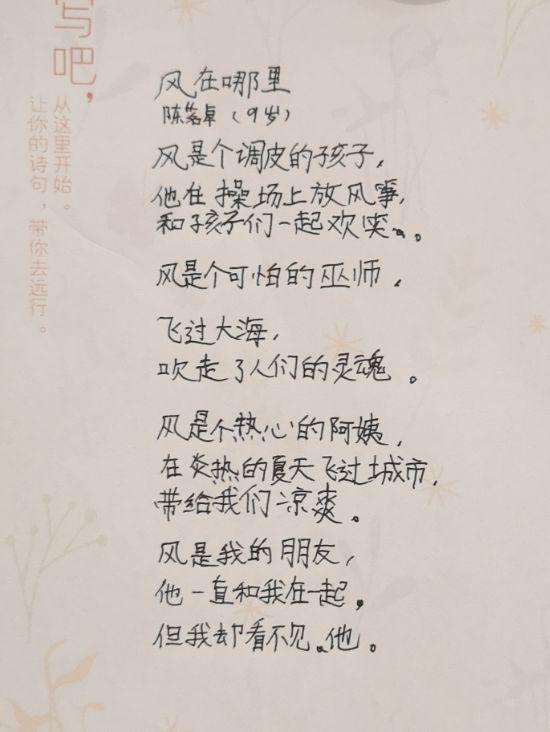 写吧，
从这里开始。
让你的诗句，带你去远行。
风在哪里
陈茗卓（9岁）
风是个调皮的孩子，
他在操场上放风筝，
和孩子们一起欢笑。
风是个可怕的巫师，
飞过大海，
吹走了人们的灵魂。
风是个热心的阿姨，
在炎热的夏天飞过城市，
带给我们凉爽。
风是我的朋友，
他一直和我在一起，
但我却看不见他。